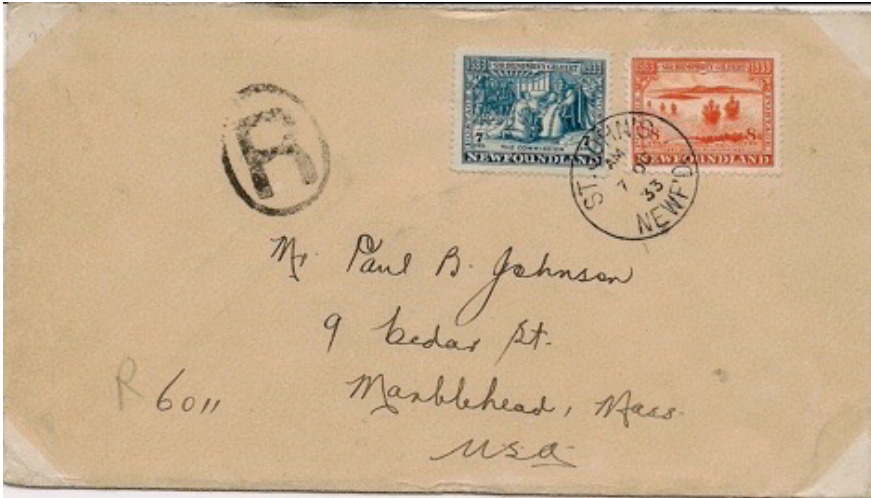 1583 SIR HUMPHREY GILBERT 1933
7
THE COMMISSION
NEWFOUNDLAND
1583 SIR HUMPHREY GILBERT 1933
8 8
NEWFOUNDLAND
ST. JOHN'S
AM
7 OC
33
NEWF'D
R
Mr. Paul B. Johnson
9 Cedar St.
Marblehead, Mass.
USA
R 6011